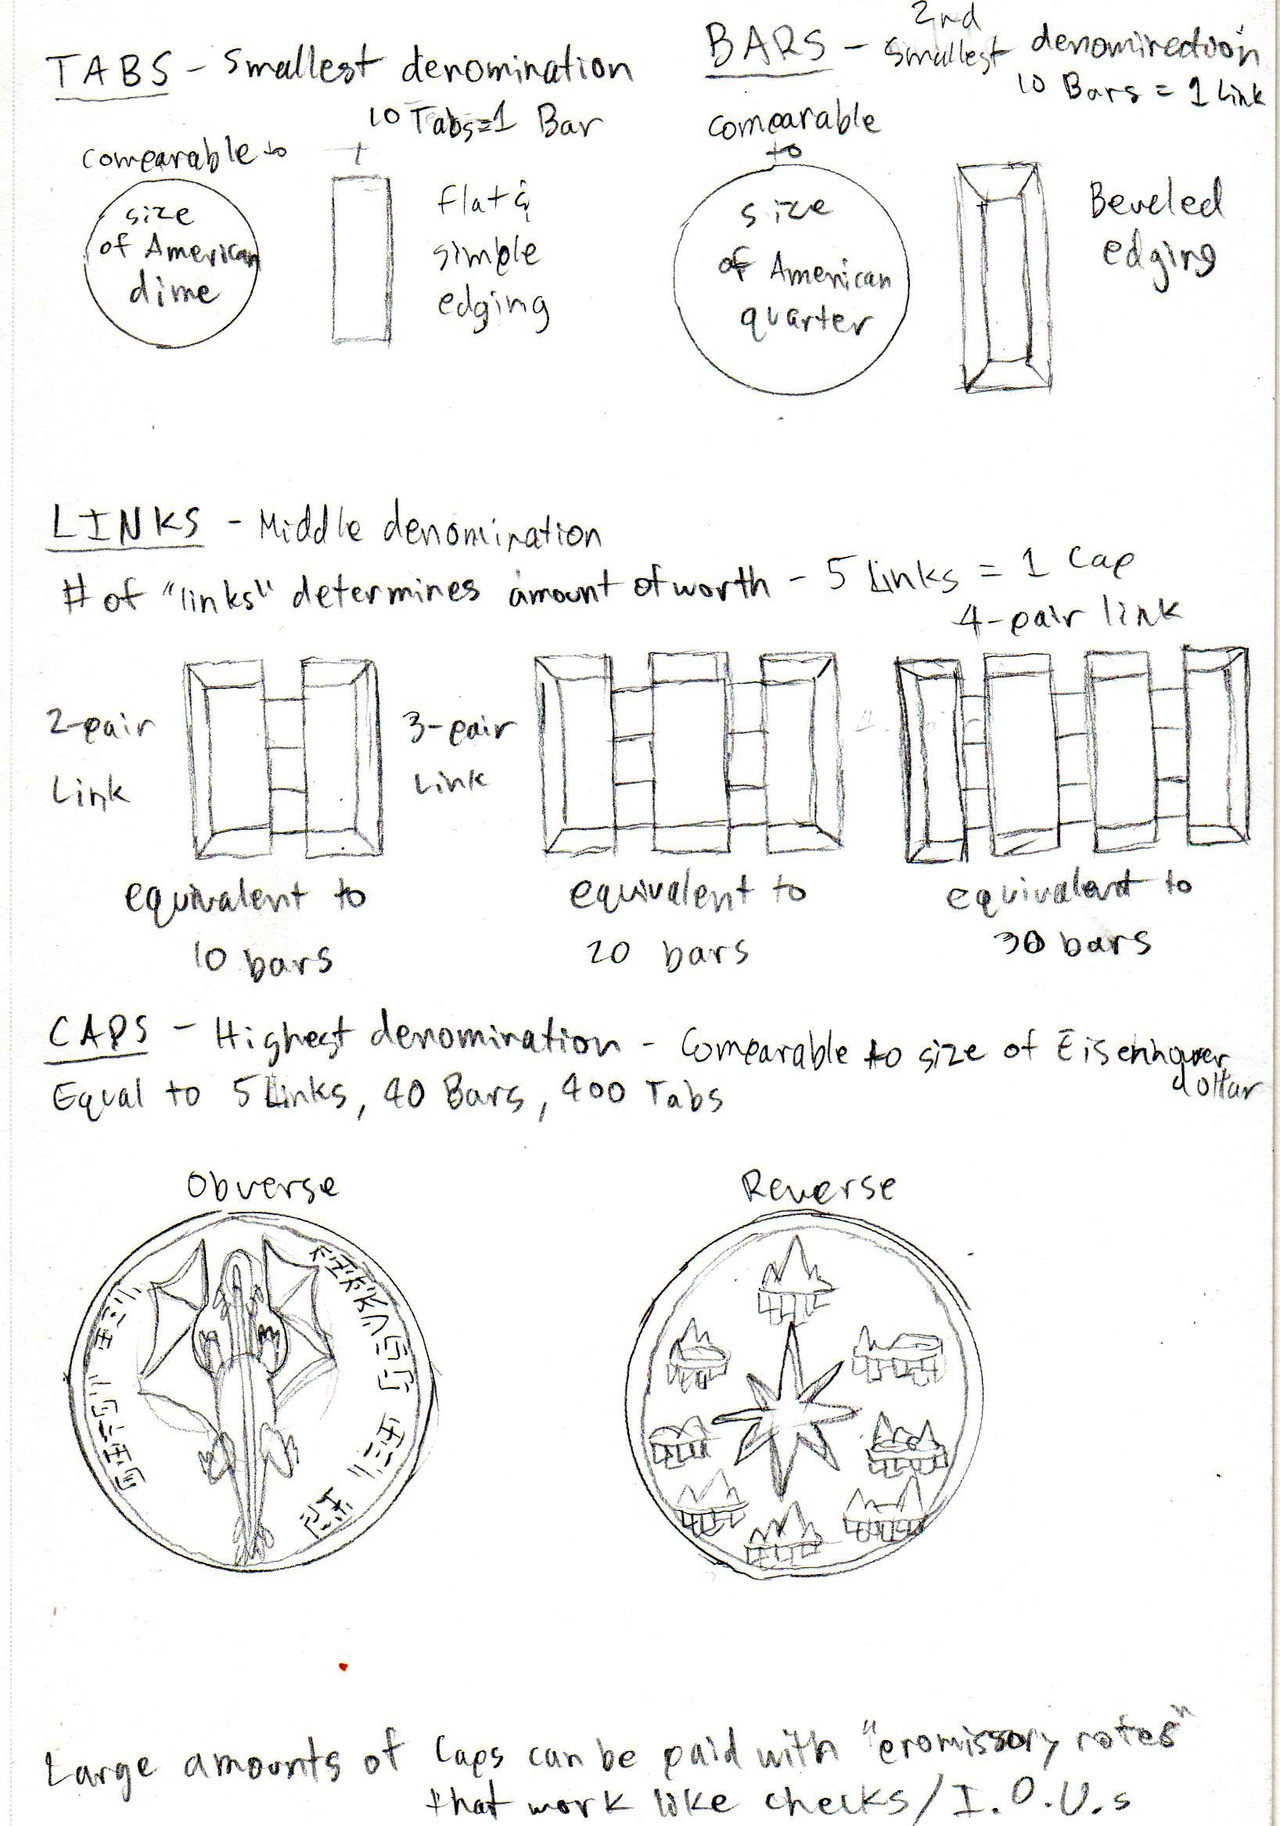 TABS - Smallest denomination
10 Tabs=1 Bar
comparable to
size
of American
dime
flat &
simple
edging
BARS - 2nd
smallest denomination
10 Bars = 1 Link
comparable
to
size
of American
quarter
Beveled
edging
LINKS - Middle denomination
# of "links" determines amount of worth - 5 Links = 1 Cap
2-pair
Link
equivalent to
10 bars
3-pair
Link
equivalent to
20 bars
4-pair link
equivalent to
30 bars
CAPS - Highest denomination - Comparable to size of Eisenhower
dollar
Equal to 5 Links, 40 Bars, 400 Tabs
Obverse
Reverse
Large amounts of Caps can be paid with "promissory notes"
that work like checks/I.O.U.s